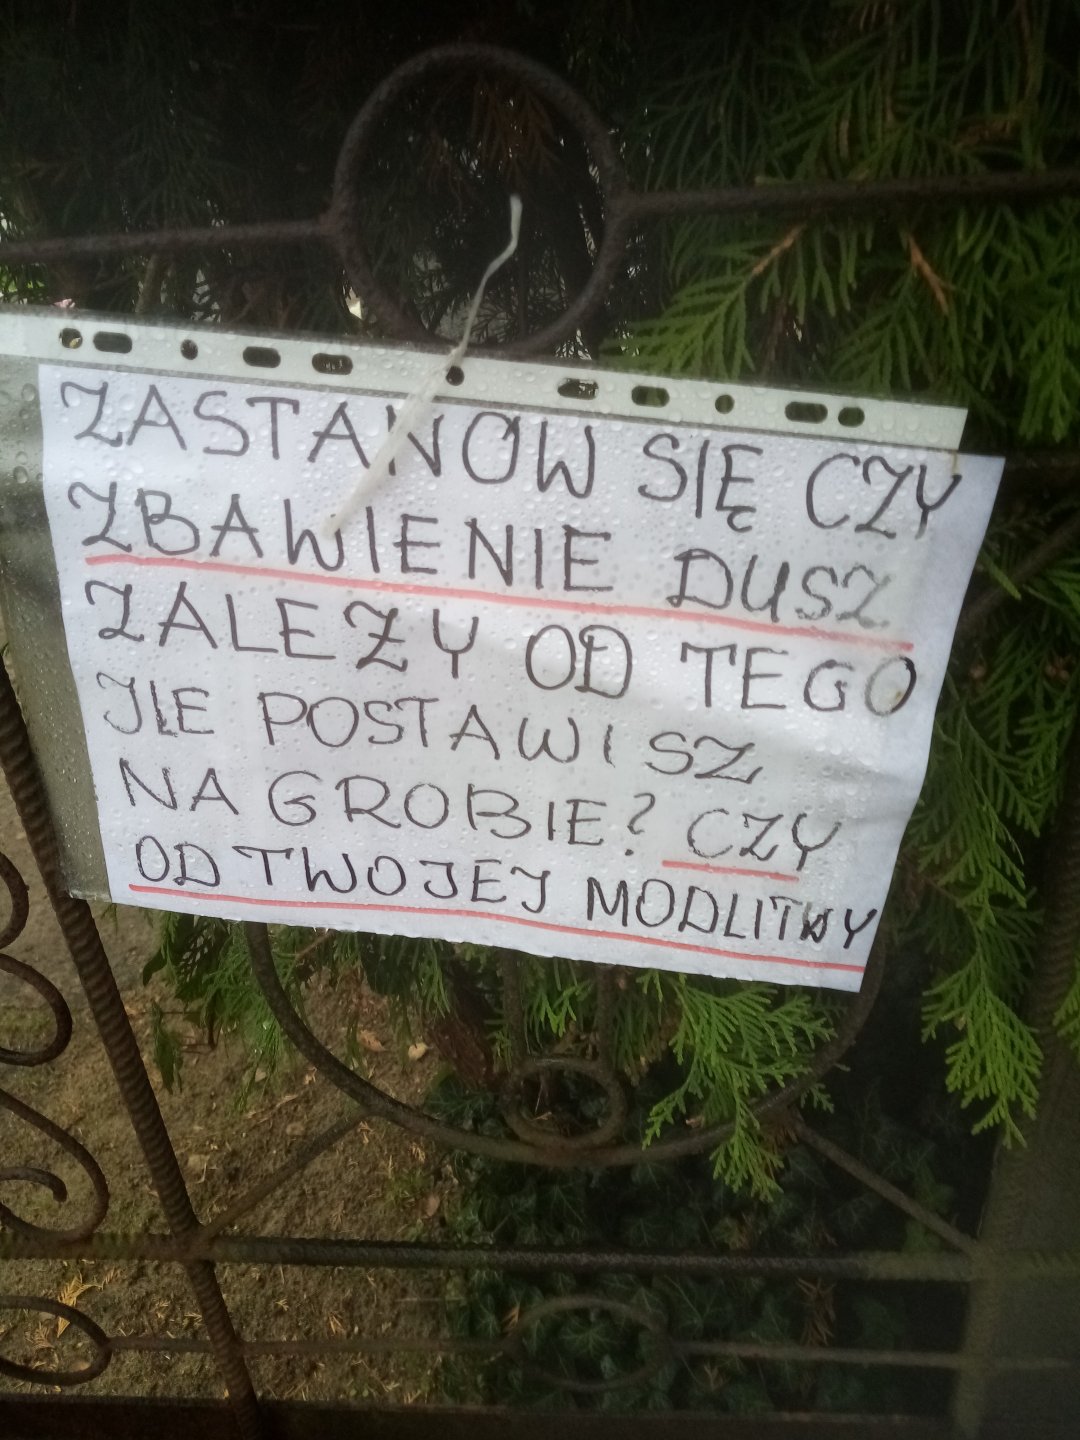 ZASTANÓW SIĘ CZY
ZBAWIENIE DUSZ
ZALEŻY OD TEGO
ILE POSTAWISZ
NA GROBIE? CZY
OD TWOJEJ MODLITWY